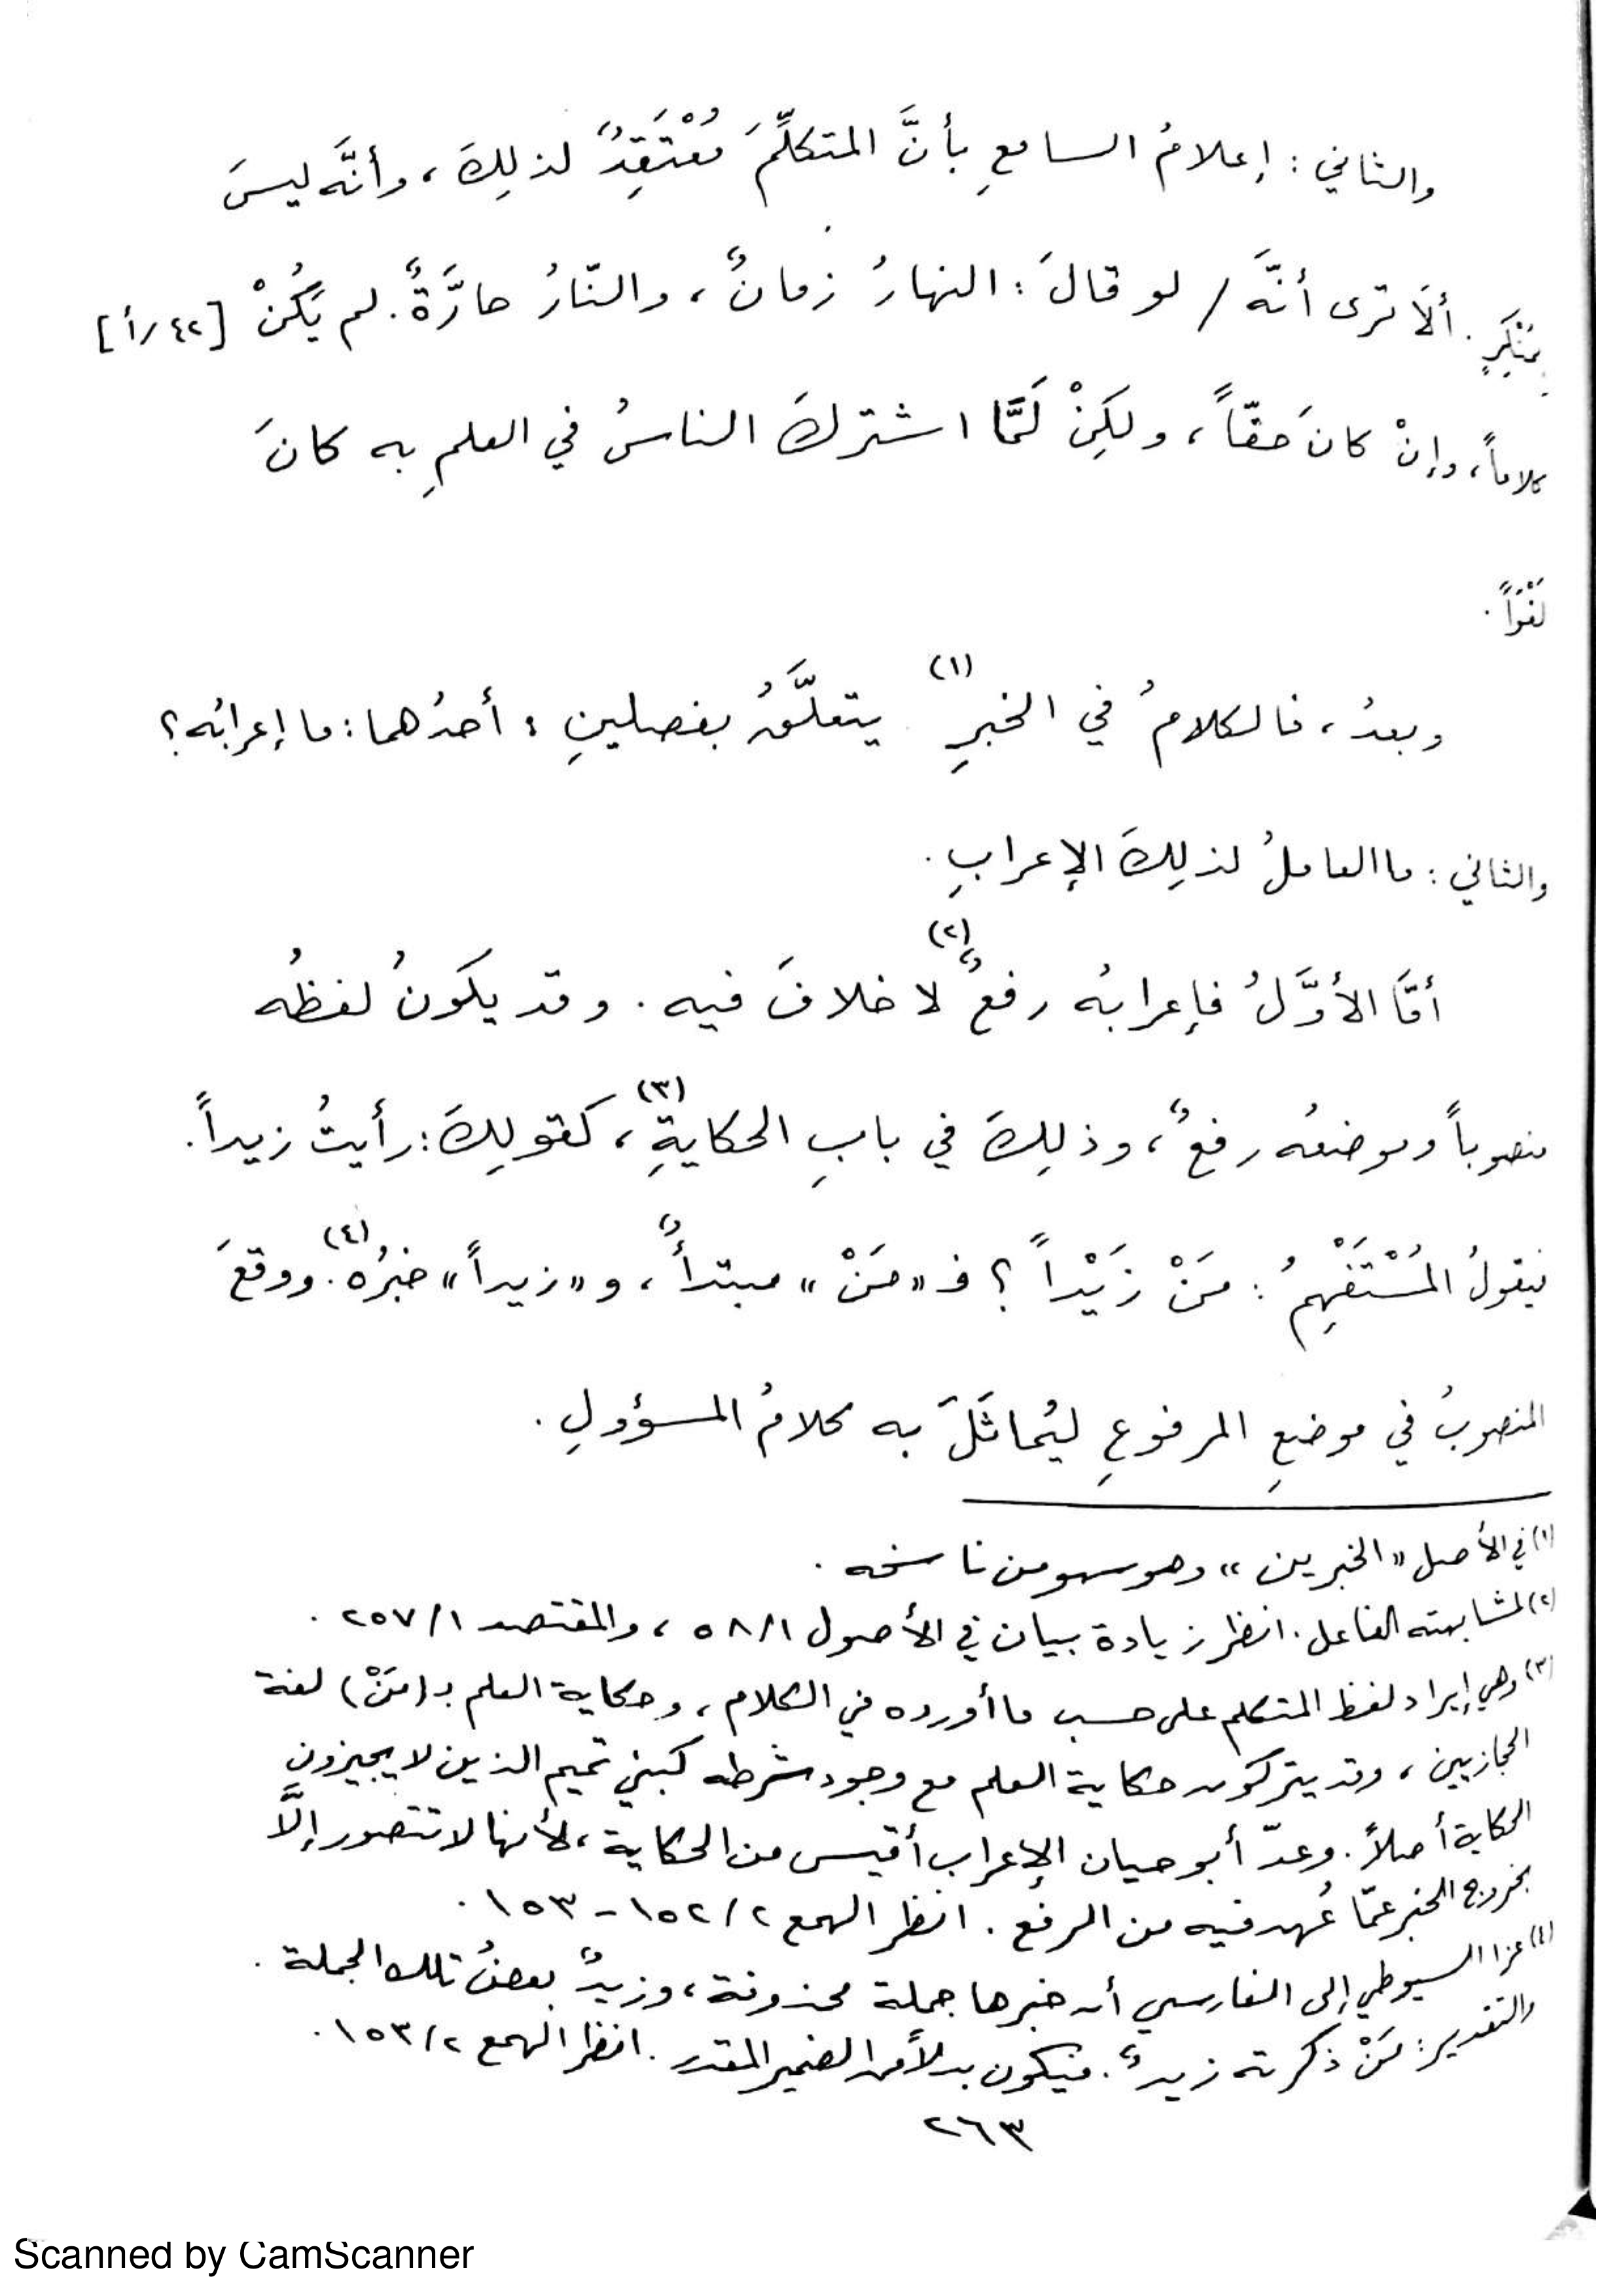 والثاني : إعلامُ السامعِ بأنَّ المتكلِّمَ مُعْتَقِدٌ لذلِكَ ، وأنَّه ليسَ
بمُنْكِرٍ . ألَا ترى أنَّه / لو قالَ : النهارُ زمانٌ ، والنّارُ حارَّةٌ . لم يَكُنْ [٤٢/أ]
كلاماً ، وإنْ كانَ حقّاً ، ولكِنْ لَمَّا اشتركَ الناسُ في العلمِ به كانَ
لَغْوَاً .
وبعدُ ، فالكلامُ في الخبرِ (١) يتعلَّقُ بفصلينِ : أحدُهما : ما إعرابُه ؟
والثاني : ما العاملُ لذلِكَ الإعرابِ .
أمَّا الأوَّلُ فإعرابُه رفعٌ (٢) لا خلافَ فيه . وقد يكونُ لفظُه
منصوباً وموضعُه رفعٌ ، وذلِكَ في بابِ الحكايةِ (٣) ، كقولِكَ : رأيتُ زيداً .
فيقولُ المُسْتَفْهِمُ : مَنْ زَيْداً ؟ فـ « مَنْ » مبتدأٌ ، و « زيداً » خبرُه (٤) . ووقعَ
المنصوبُ في موضعِ المرفوعِ ليُماثَلَ به كلامُ المسؤولِ .
(١) في الأصل « الخبرين » وهو سهو من ناسخه .
(٢) لمشابهته الفاعل . انظر زيادة بيان في الأصول ٥٨/١ ، والمقتصد ٢٥٧/١ .
(٣) وهي إيراد لفظ المتكلم على حسب ما أورده في الكلام ، وحكاية العلم بـ (مَنْ) لغة
الحجازيين ، وقد يتركون حكاية العلم مع وجود شرطه كبني تميم الذين لا يجيزون
الحكاية أصلاً . وعدّ أبو حيان الإعراب أقيس من الحكاية ، لأنها لا تتصور إلَّا
بخروج الخبر عمّا عُهد فيه من الرفع . انظر الهمع ١٥٢/٢ - ١٥٣ .
(٤) عزا السيوطي إلى الفارسي أن خبرها جملة محذوفة ، وزيدٌ بعضُ تلك الجملة .
والتقدير : مَنْ ذكرته زيدٌ . فيكون بدلاً من الضمير المقدر . انظر الهمع ١٥٣/٢ .
٢٦٣
Scanned by CamScanner